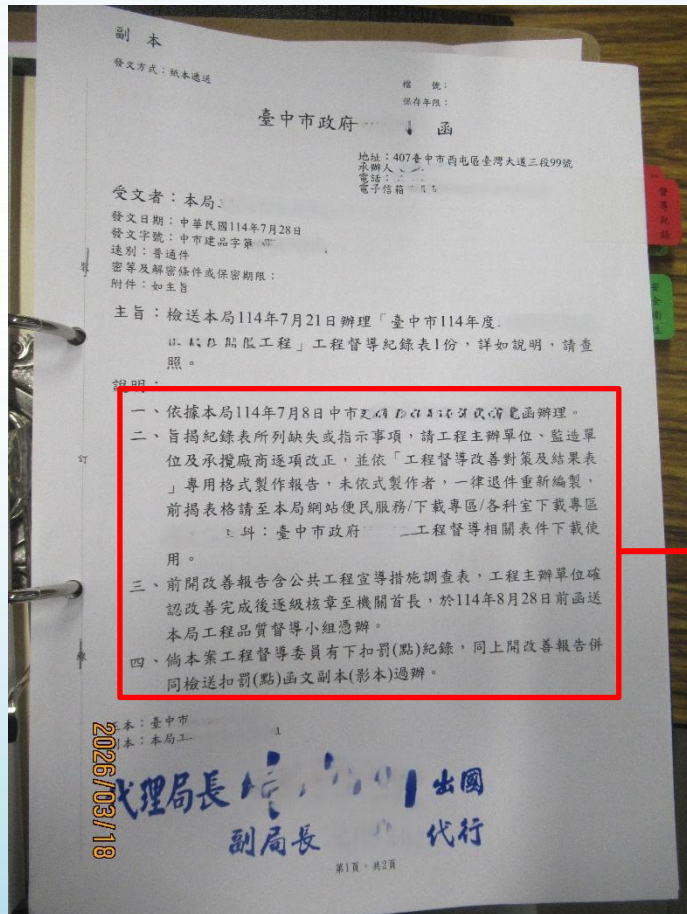 副 本
發文方式：紙本遞送
檔 號：
保存年限：
臺中市政府 函
地址：407臺中市西屯區臺灣大道三段99號
承辦人
電話：
電子信箱
受文者：本局
發文日期：中華民國114年7月28日
發文字號：中市建品字第
速別：普通件
密等及解密條件或保密期限：
附件：如主旨
主旨：檢送本局114年7月21日辦理「臺中市114年度
工程」工程督導紀錄表1份，詳如說明，請查
照。
說明：
一、依據本局114年7月8日中市 函辦理。
二、旨揭紀錄表所列缺失或指示事項，請工程主辦單位、監造單
位及承攬廠商逐項改正，並依「工程督導改善對策及結果表
」專用格式製作報告，未依式製作者，一律退件重新編製，
前揭表格請至本局網站便民服務/下載專區/各科室下載專區
科：臺中市政府 工程督導相關表件下載使
用。
三、前開改善報告含公共工程宣導措施調查表，工程主辦單位確
認改善完成後逐級核章至機關首長，於114年8月28日前函送
本局工程品質督導小組憑辦。
四、倘本案工程督導委員有下扣罰(點)紀錄，同上開改善報告併
同檢送扣罰(點)函文副本(影本)過辦。
裝
訂
線
正本：臺中市
副本：本局
代理局長 出國
副局長 代行
第1頁，共2頁
督導紀錄
安全衛生
2026/03/18